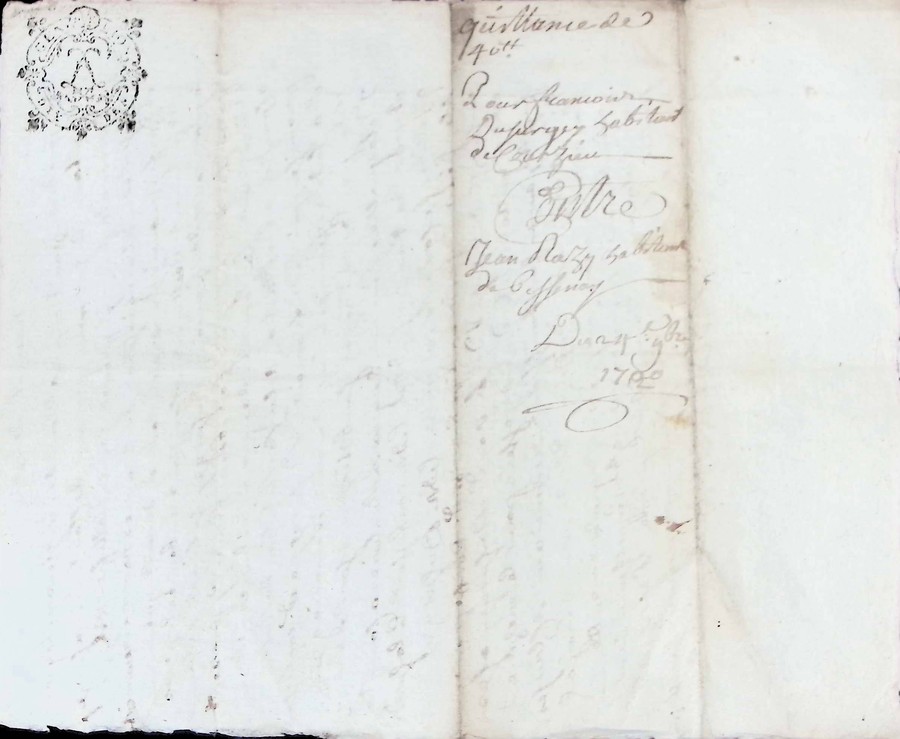 quittance de
40ᵗᵗ
Pour francois
Dupergey habitant
de Courzieu
Contre
Jean Razy habitant
de Bessenay
Du 24ᵉ 9bre
1780